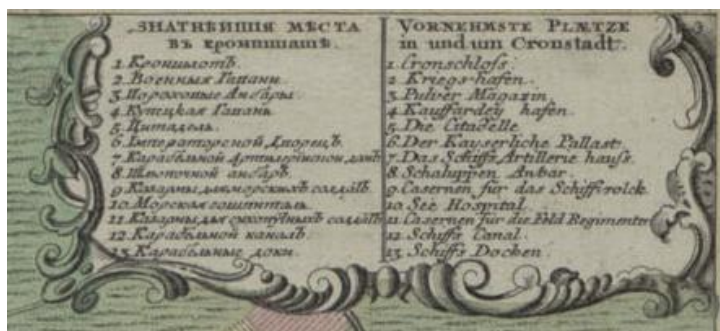 ЗНАТНѢЙШІЯ МѢСТА
въ кронштатѣ.
1. Кроншлотъ.
2. Военныя Гапани.
3. Пороховые Анбары.
4. Купецкая Гапань
5. Цитадель.
6. Імператорской Дворецъ.
7. Карабельной Артилерискои домъ
8. Шлюпочной анбаръ.
9. Казармы для морскихъ солдатъ.
10. Морская гошпиталь.
11. Казармы для сухопутныхъ солдатъ
12. Карабельной каналъ.
13. Карабельные доки.
VORNEHMSTE PLÆTZE
in und um Cronstadt.
1. Cronschlofs.
2. Kriegs-hafen.
3. Pulver Magazin.
4. Kauffardey hafen.
5. Die Citadelle.
6. Der Kayserliche Pallast.
7. Das Schiffs Artillerie haufs.
8. Schaluppen Anbar.
9. Casernen für das Schiffsvolck.
10. See Hospital.
11. Casernen für die Feld Regimenter
12. Schiffs Canal.
13. Schiffs Docken.